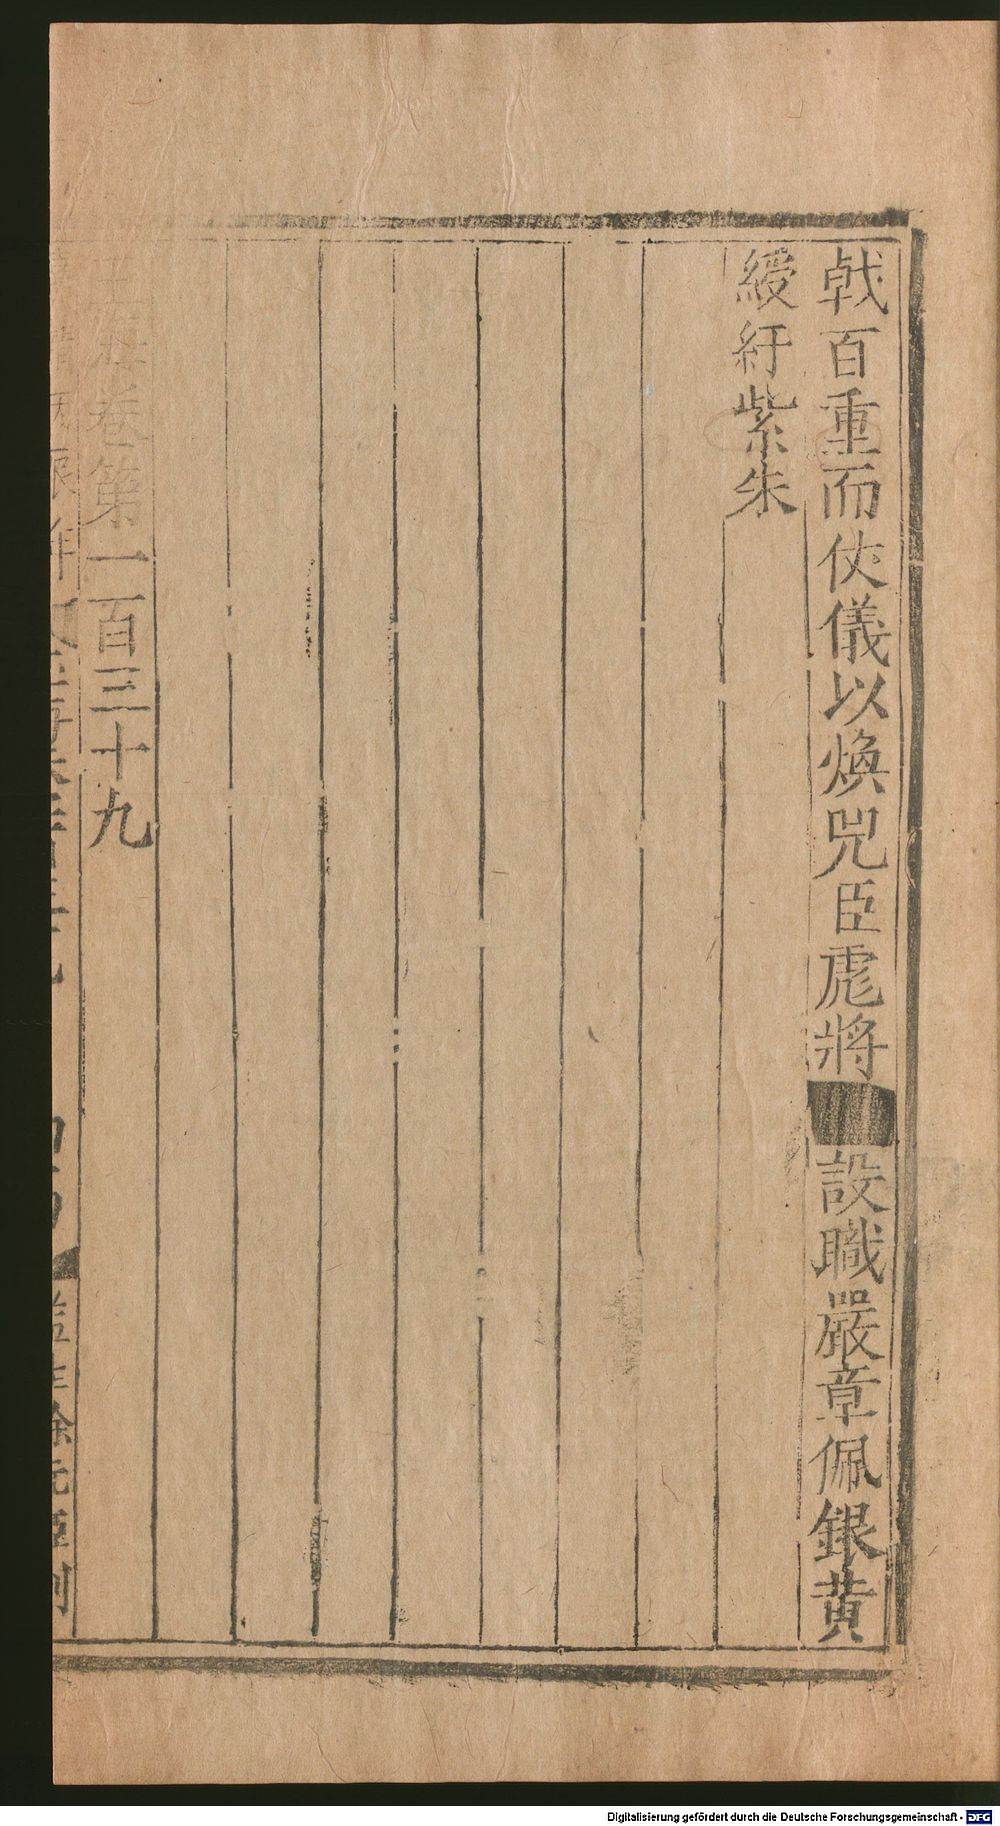 戟百重而侠儀以煥兕臣虎將■設職嚴章佩銀黄
綬紆紫朱
玉海卷第一百三十九
Digitalisierung gefördert durch die Deutsche Forschungsgemeinschaft - DFG